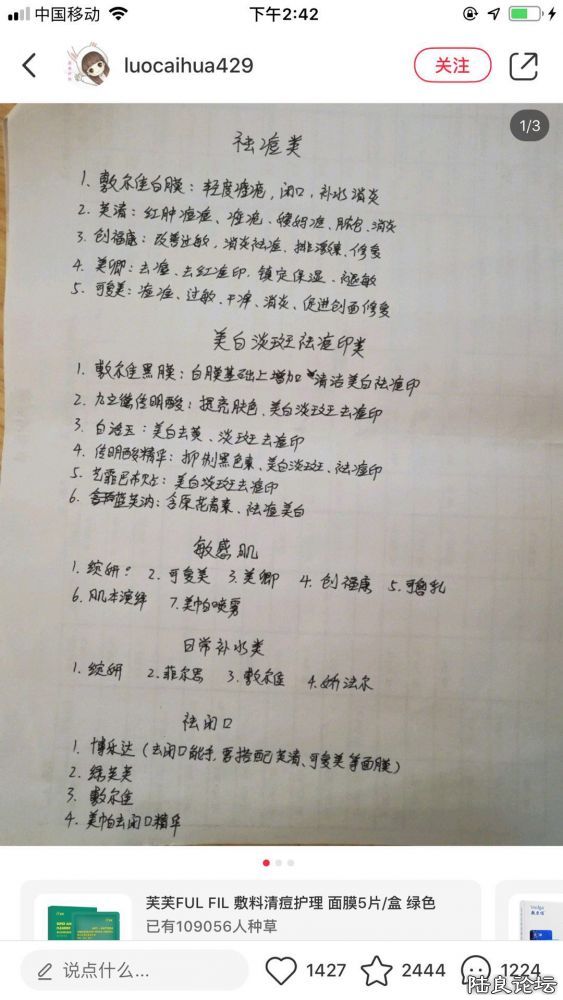 中国移动
下午2:42
luocaihua429
关注
1/3
祛痘类
1. 敷尔佳白膜：轻度痤疮，闭口，补水消炎
2. 芙清：红肿痘痘、痤疮、姨妈痘、脓包、消炎
3. 创福康：改善过敏，消炎祛痘、排湿
4. 美卿：去痘、去红痘印、镇定保湿、褪敏
5. 可复美：痘痘、过敏、干净、消炎、促进创面修复
美白淡斑祛痘印类
1. 敷尔佳黑膜：白膜基础上增加 清洁美白祛痘印
2. 传明酸：提亮肤色、美白淡斑去痘印
3. 白玉：美白去黄、淡斑去痘印
4. 传明酸精华：抑制黑色素、美白淡斑、祛痘印
5. 艺霏巴布贴：美白淡斑去痘印
6. 蓝芙汭：含原花青素、祛痘美白
敏感肌
1. 绽妍？ 2. 可复美 3. 美卿 4. 创福康 5. 可鲁乳
6. 肌本演绎 7. 美帕喷雾
日常补水类
1. 绽妍 2. 菲尔思 3. 敷尔佳 4. 妍法尔
祛闭口
1. 博乐达（去闭口能手，要搭配芙清、可复美等面膜）
2. 绿芙芙
3. 敷尔佳
4. 美帕去闭口精华
芙芙FUL FIL 敷料清痘护理 面膜5片/盒 绿色
已有109056人种草
说点什么...
1427
2444
1224
陆良论坛